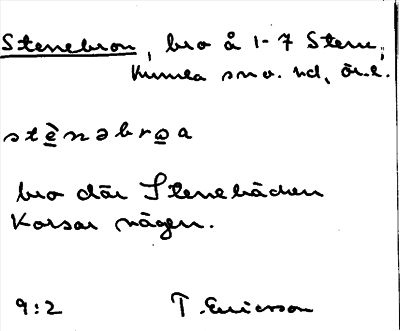 Stenebron, bro å 1-7 Stene,
Kumla sn o. hd, Ör.l.
stènəbrωa
bro där Stenebäcken
Korsar vägen.
9:2 T. Ericsson